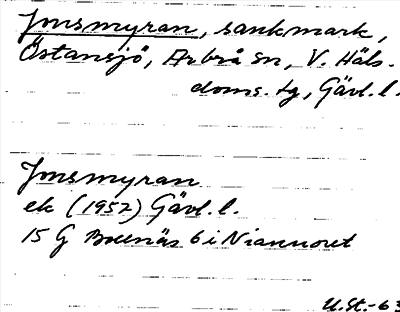 Jonsmyran, sankmark,
Östansjö, Arbrå sn, V. Häls.
doms. tg, Gävl. l.
Jonsmyran
ek (1957) Gävl. l.
15 G 6 i
U.St.-63